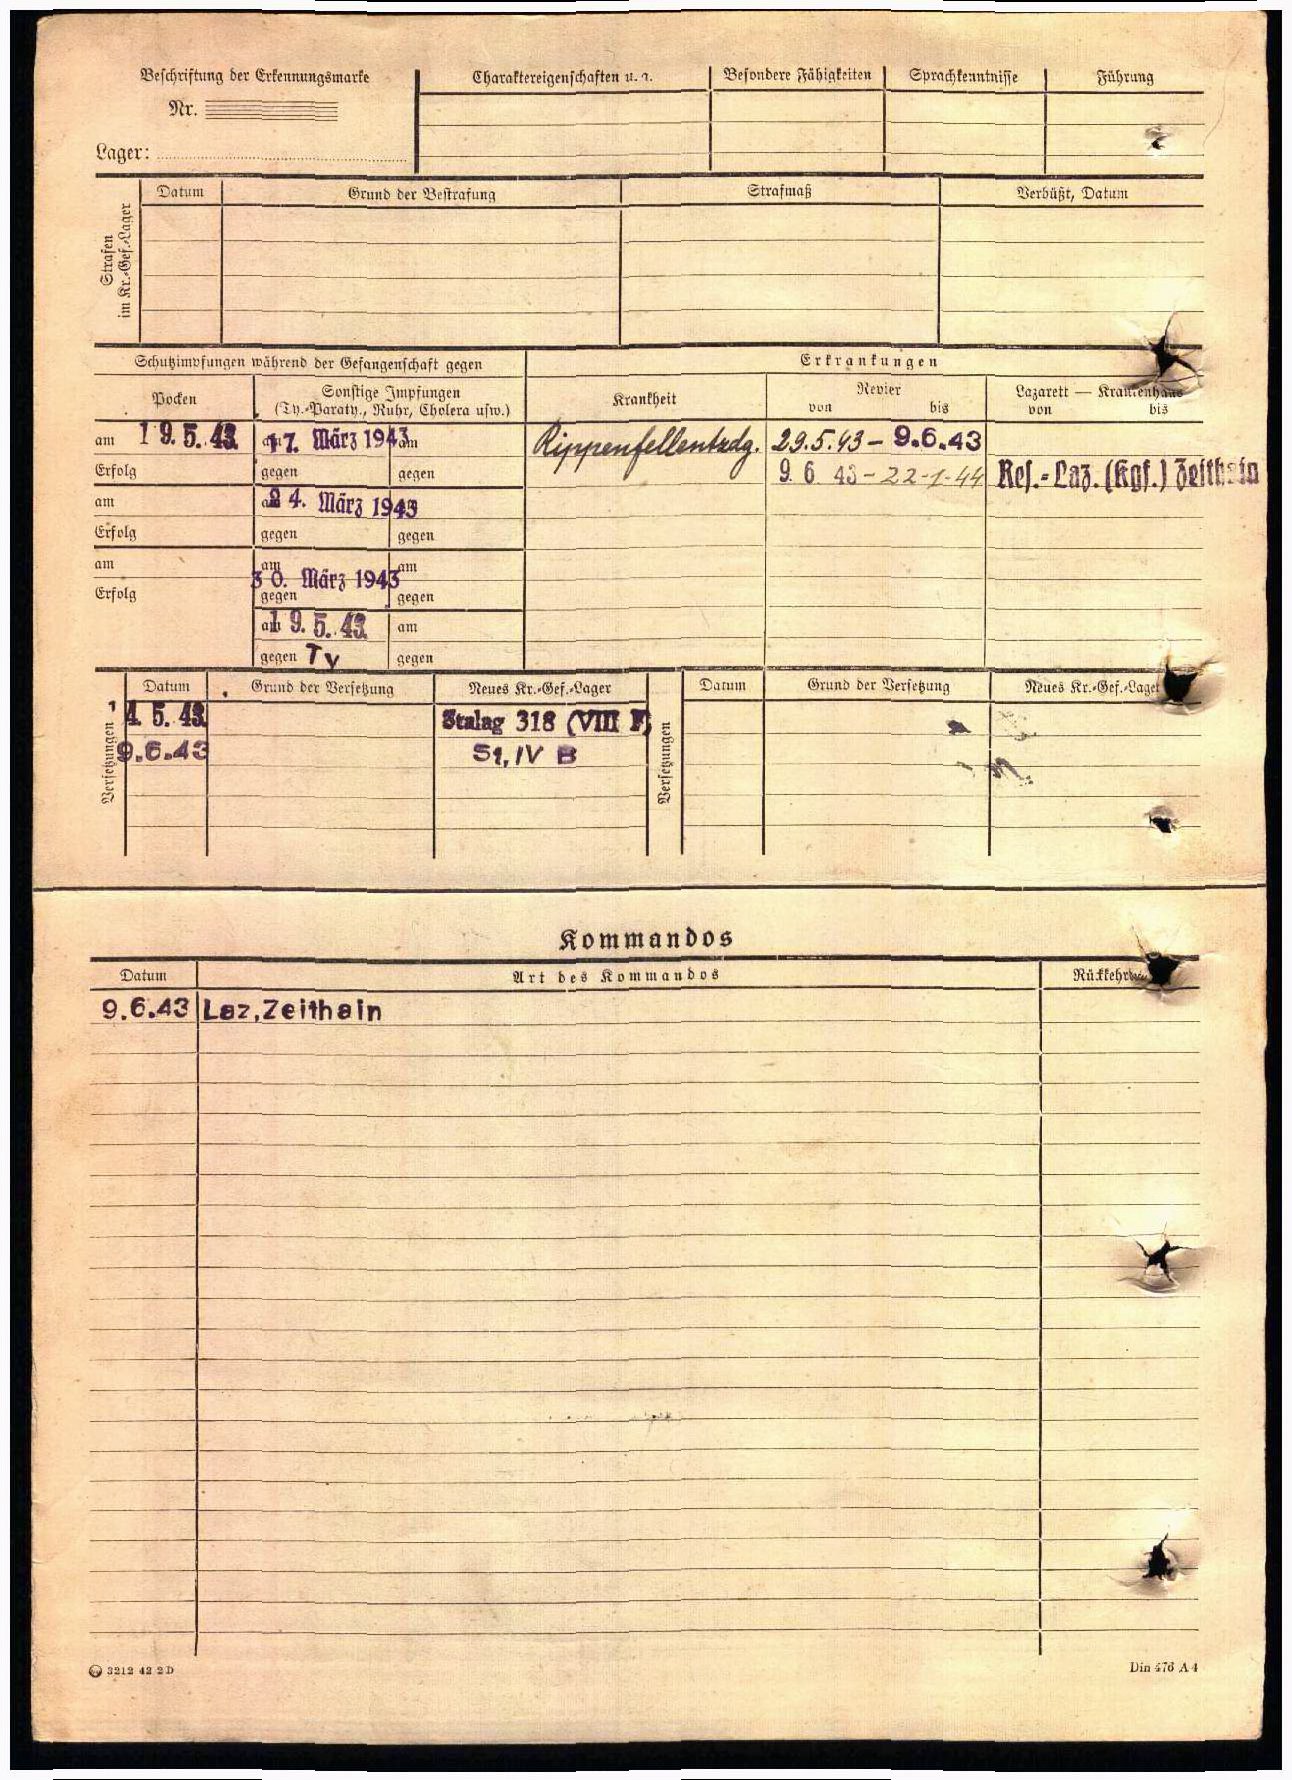 Beschriftung der Erkennungsmarke
Nr.
Lager:
Charaktereigenschaften u. a.
Besondere Fähigkeiten
Sprachkenntnisse
Führung
Strafen
im Kr.-Gef.-Lager
Datum
Grund der Bestrafung
Strafmaß
Verbüßt, Datum
Schutzimpfungen während der Gefangenschaft gegen
Erkrankungen
Pocken
Sonstige Impfungen
(Ty.-Paraty., Ruhr, Cholera usw.)
Krankheit
Revier
von bis
Lazarett — Krankenhaus
von bis
am 19.5.43 am 17. März 1943 am
Rippenfellentzdg. 29.5.43 – 9.6.43
Erfolg gegen gegen
9.6.43 – 22-1-44 Res.-Laz. (Kgf.) Zeithain
am am 24. März 1943
Erfolg gegen gegen
am am 30. März 1943 am
Erfolg gegen gegen
am 19.5.43 am
gegen Ty gegen
Versetzungen
Datum Grund der Versetzung Neues Kr.-Gef.-Lager
4.5.43 Stalag 318 (VIII F)
9.6.43 St, IV B
Versetzungen
Datum Grund der Versetzung Neues Kr.-Gef.-Lager
Kommandos
Datum Art des Kommandos
9.6.43 Laz, Zeithain
3212 42 2 D
Din 476 A 4